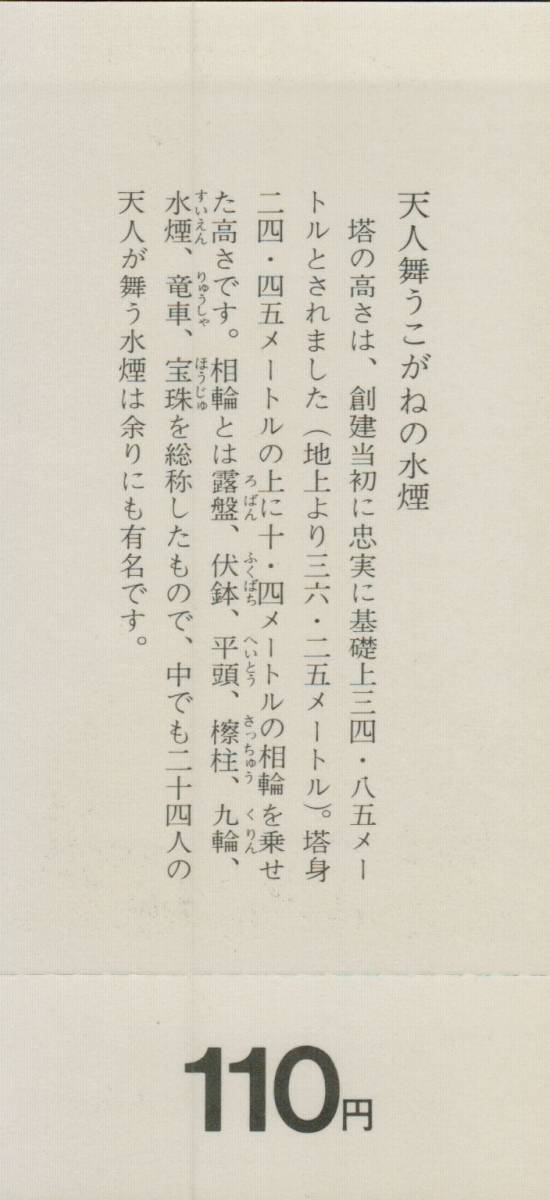 天人舞うこがねの水煙
塔の高さは、創建当初に忠実に基礎上三四・八五メー
トルとされました（地上より三六・二五メートル）。塔身
二四・四五メートルの上に十・四メートルの相輪を乗せ
た高さです。相輪とは露盤、伏鉢、平頭、檫柱、九輪、
ろばん ふくばち へいとう さっちゅう くりん
水煙、竜車、宝珠を総称したもので、中でも二十四人の
すいえん りゅうしゃ ほうじゅ
天人が舞う水煙は余りにも有名です。
110円